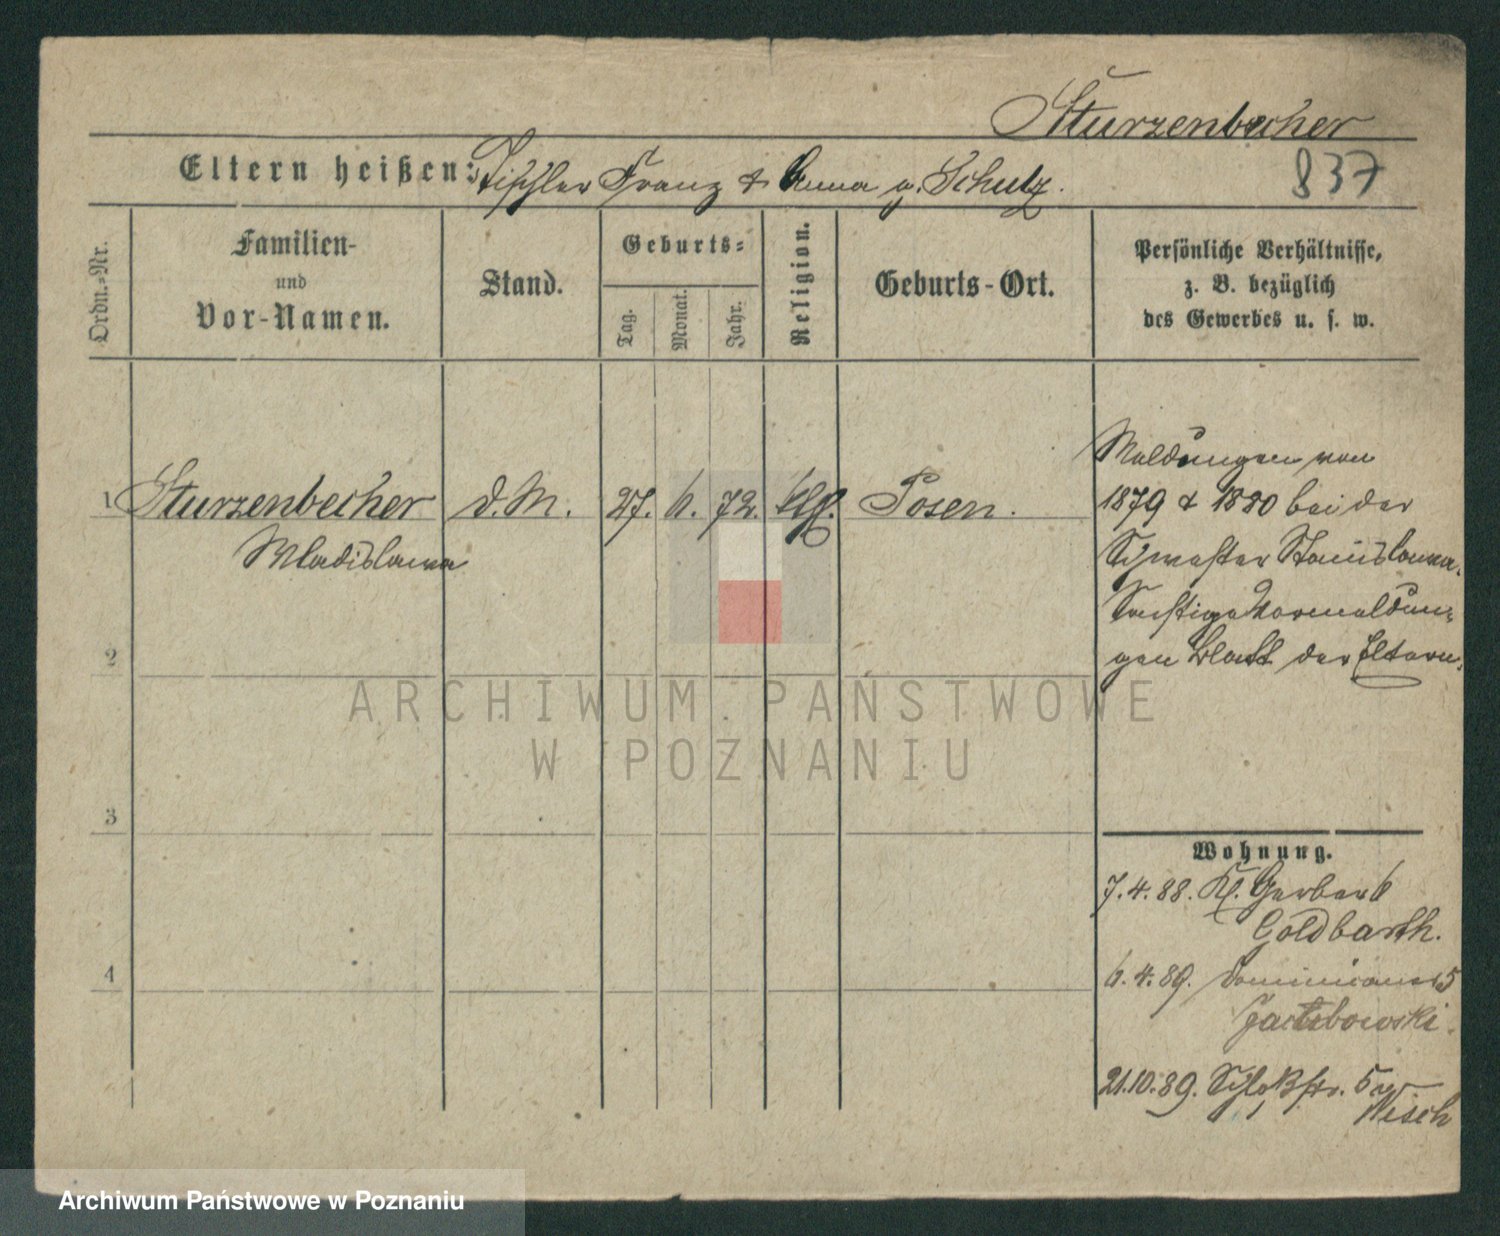 Sturzenbecher
Eltern heißen: Tischler Franz & Anna g. Schulz.
837
Ordn.-Nr.
Familien-
und
Vor-Namen.
Stand.
Geburts-
Tag.
Monat.
Jahr.
Religion.
Geburts-Ort.
Persönliche Verhältnisse,
z. B. bezüglich
des Gewerbes u. s. w.
1 Sturzenbecher d. M. 27. 6. 72. Posen.
Wladislawa
Meldungen von
1879 & 1880 bei der
Schwester Stanislawa.
Sonstige Vormeldun-
gen Blatt der Eltern.
2
3
4
ARCHIWUM PAŃSTWOWE
W POZNANIU
Wohnung.
7.4.88. Kl. Gerber 6
Goldbarth.
6.4.89. 5
21.10.89. Schloßstr. 5
Nisch
Archiwum Państwowe w Poznaniu